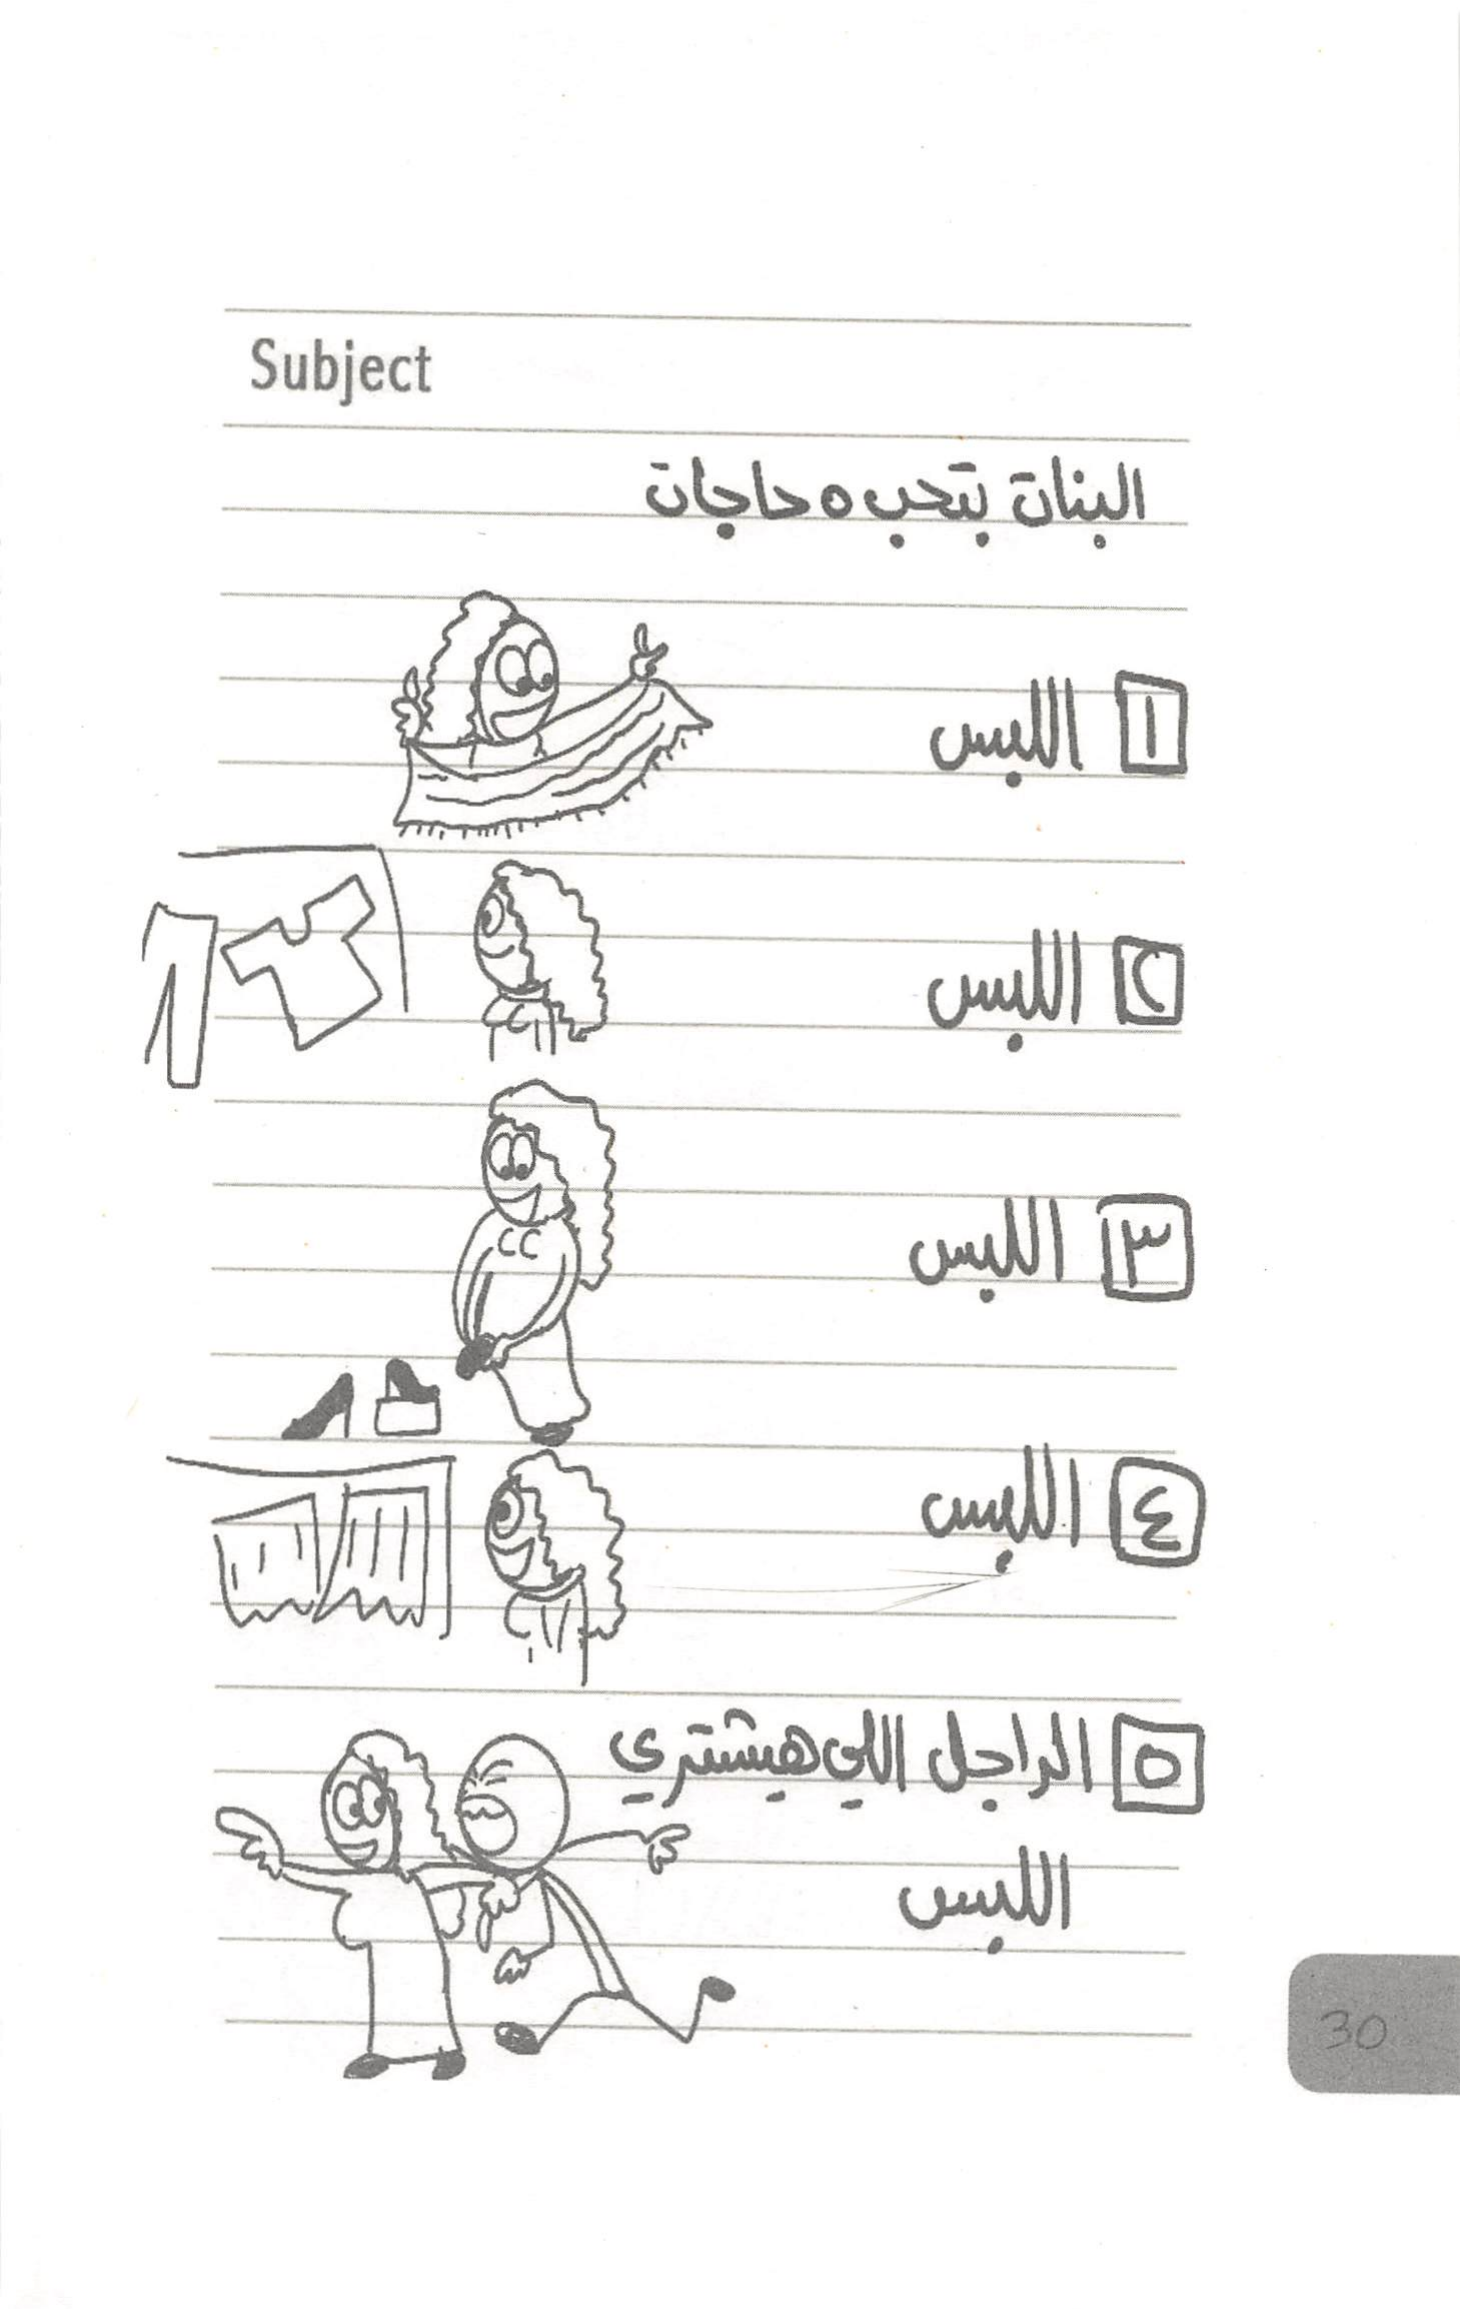 Subject
البنات بتحب ٥ حاجات
١ اللبس
٢ اللبس
٣ اللبس
٤ اللبس
٥ الراجل اللي هيشتري
اللبس
30